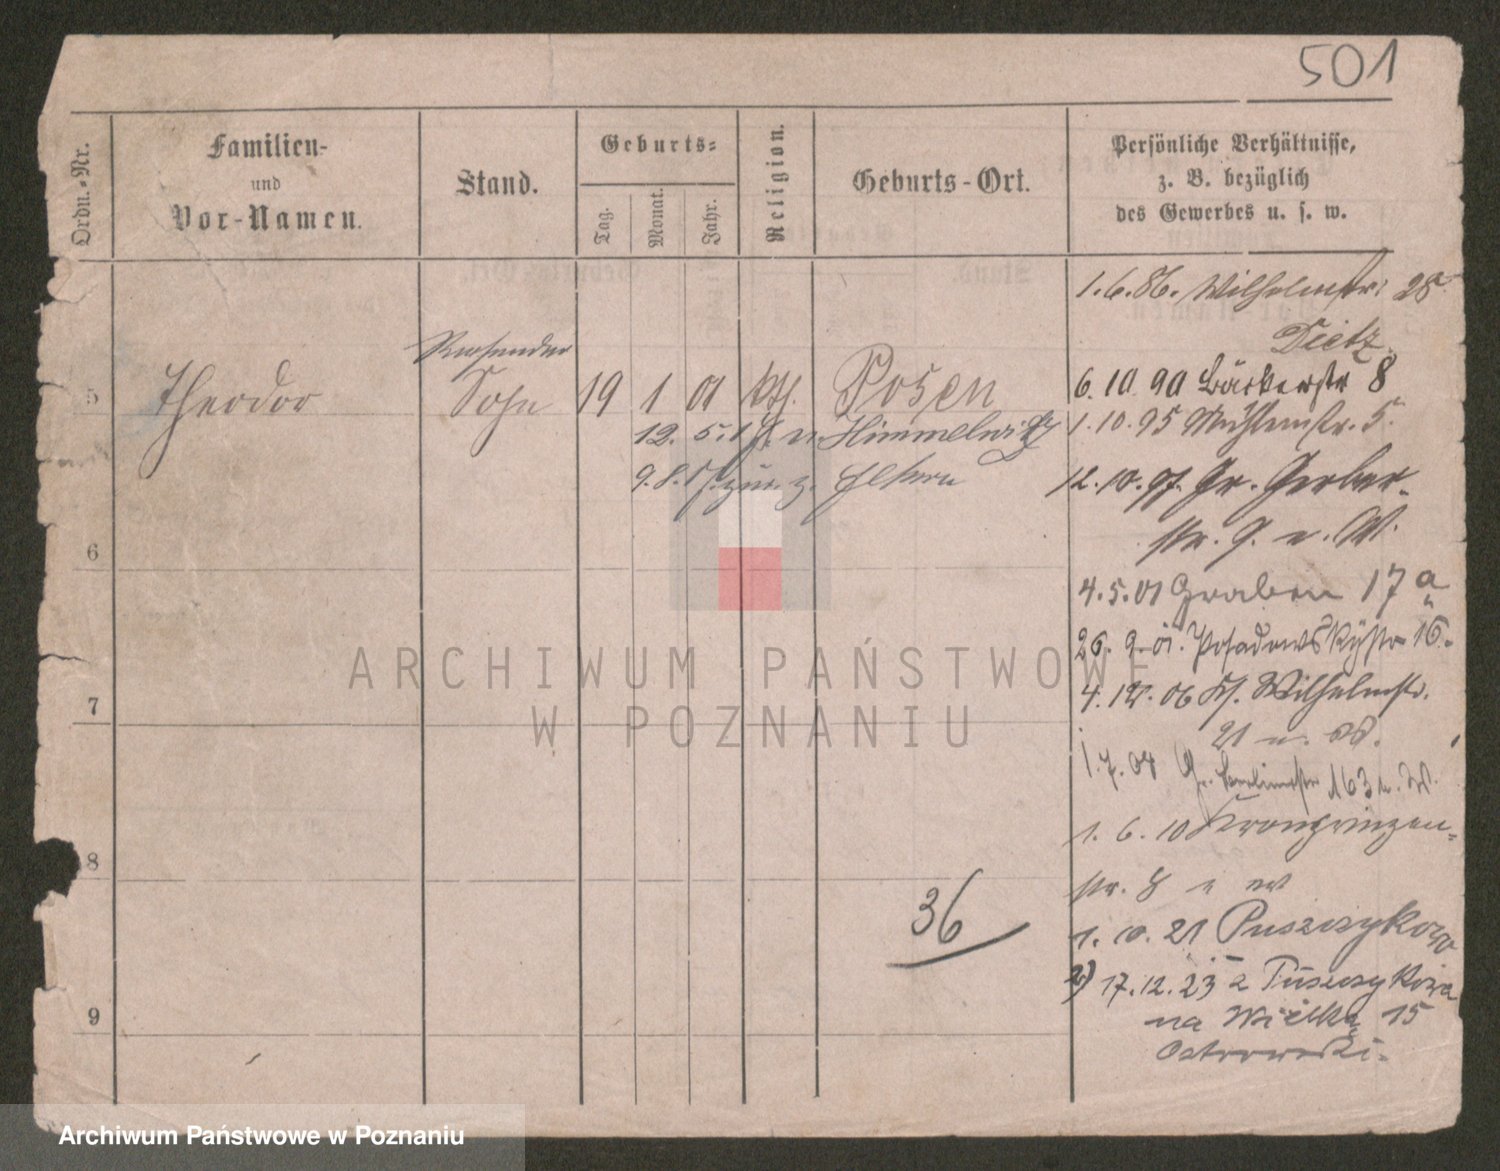 501
Ordn.-Nr.
Familien-
und
Vor-Namen.
Stand.
Geburts-
Tag.
Monat.
Jahr.
Religion.
Geburts-Ort.
Persönliche Verhältnisse,
z. B. bezüglich
des Gewerbes u. s. w.
1.6.86. Wilhelmstr. 28
Dietz.
5 Theodor Sohn 19 1 01 kth. Posen
6. 10. 90 Bäckerstr 8
12. 5. n. Himmelwitz
1.10.95 Mühlenstr. 5.
9.8. zur. z. Eltern
12.10.97. Gr. Gerber-
str. 9. n. W.
6
4.5.01 Graben 17a
26. 9. 01. Posadowskystr 16.
4. 12. 06 Kl. Wilhelmstr.
7
21 n. W.
1.7.08 Gr. Berlinerstr 163 n. W.
1. 6. 10 Kronprinzen-
8
str. 8
36
1. 10. 21 Puszczykowo
2) 17.12.23 z Puszczykowa
na Wielką 15
9
Ostrowski.
ARCHIWUM PAŃSTWOWE
W POZNANIU
Archiwum Państwowe w Poznaniu